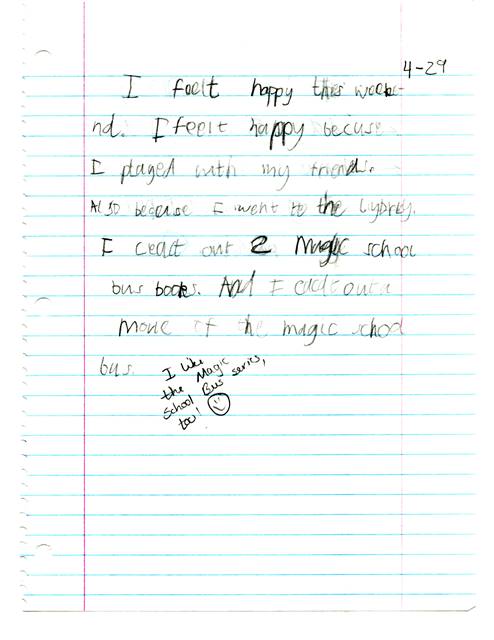 4-29
I feelt happy this weeke-
nd. I feelt happy becuse
I played with my friends.
Also becuse I went to the lybrey.
I ceact out 2 Magic school
bus books. And I ceact out a
move of the magic school
bus.
I like
the Magic
School Bus series,
too!